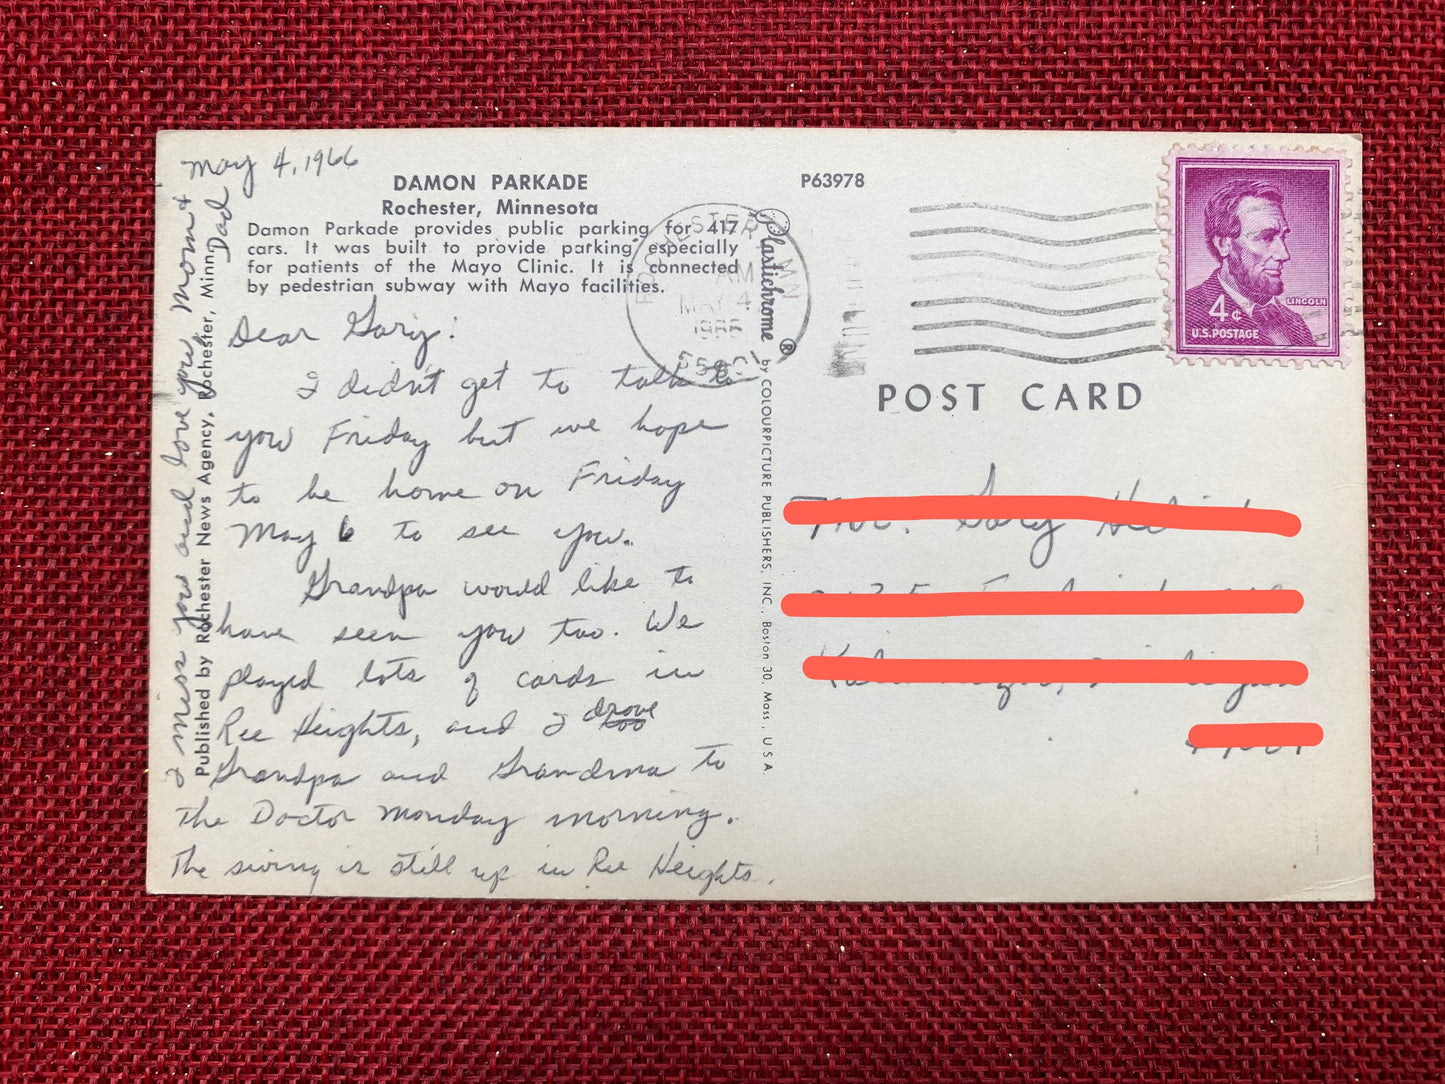 May 4, 1966
DAMON PARKADE
Rochester, Minnesota
Damon Parkade provides public parking for 417
cars. It was built to provide parking especially
for patients of the Mayo Clinic. It is connected
by pedestrian subway with Mayo facilities.
Dear Gary!
I didn't get to talk to
you Friday but we hope
to be home on Friday
May 6 to see you.
Grandpa would like to
have seen you too. We
played lots of cards in
Ree Heights, and I drove
too
Grandpa and Grandma to
the Doctor Monday morning.
The swing is still up in Ree Heights.
I miss you and love you Mom &
Dad
Published by Rochester News Agency, Rochester, Minn.
Plastichrome ® by COLOURPICTURE PUBLISHERS, INC., Boston 30, Mass., U S A
P63978
ROCHESTER MN
AM
MAY 4
1966
55901
4¢
LINCOLN
U.S. POSTAGE
POST CARD
Mr. Gary